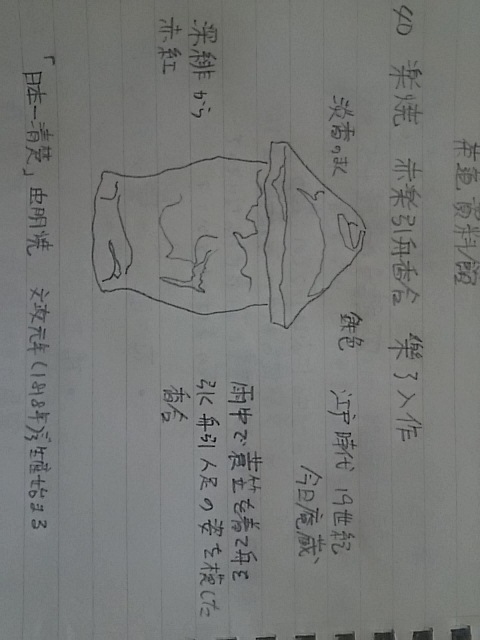 茶道資料館
40 楽焼 赤楽引舟香合 樂了入作
淡香のよう
鉄色
江戸時代 19世紀
今日庵蔵
深緋から
赤紅
雨中で蓑笠を着て舟を
引く舟引人足の姿を模した
香合
「日本一清楚」虫明焼 文政元年(1818年)に生産始まる